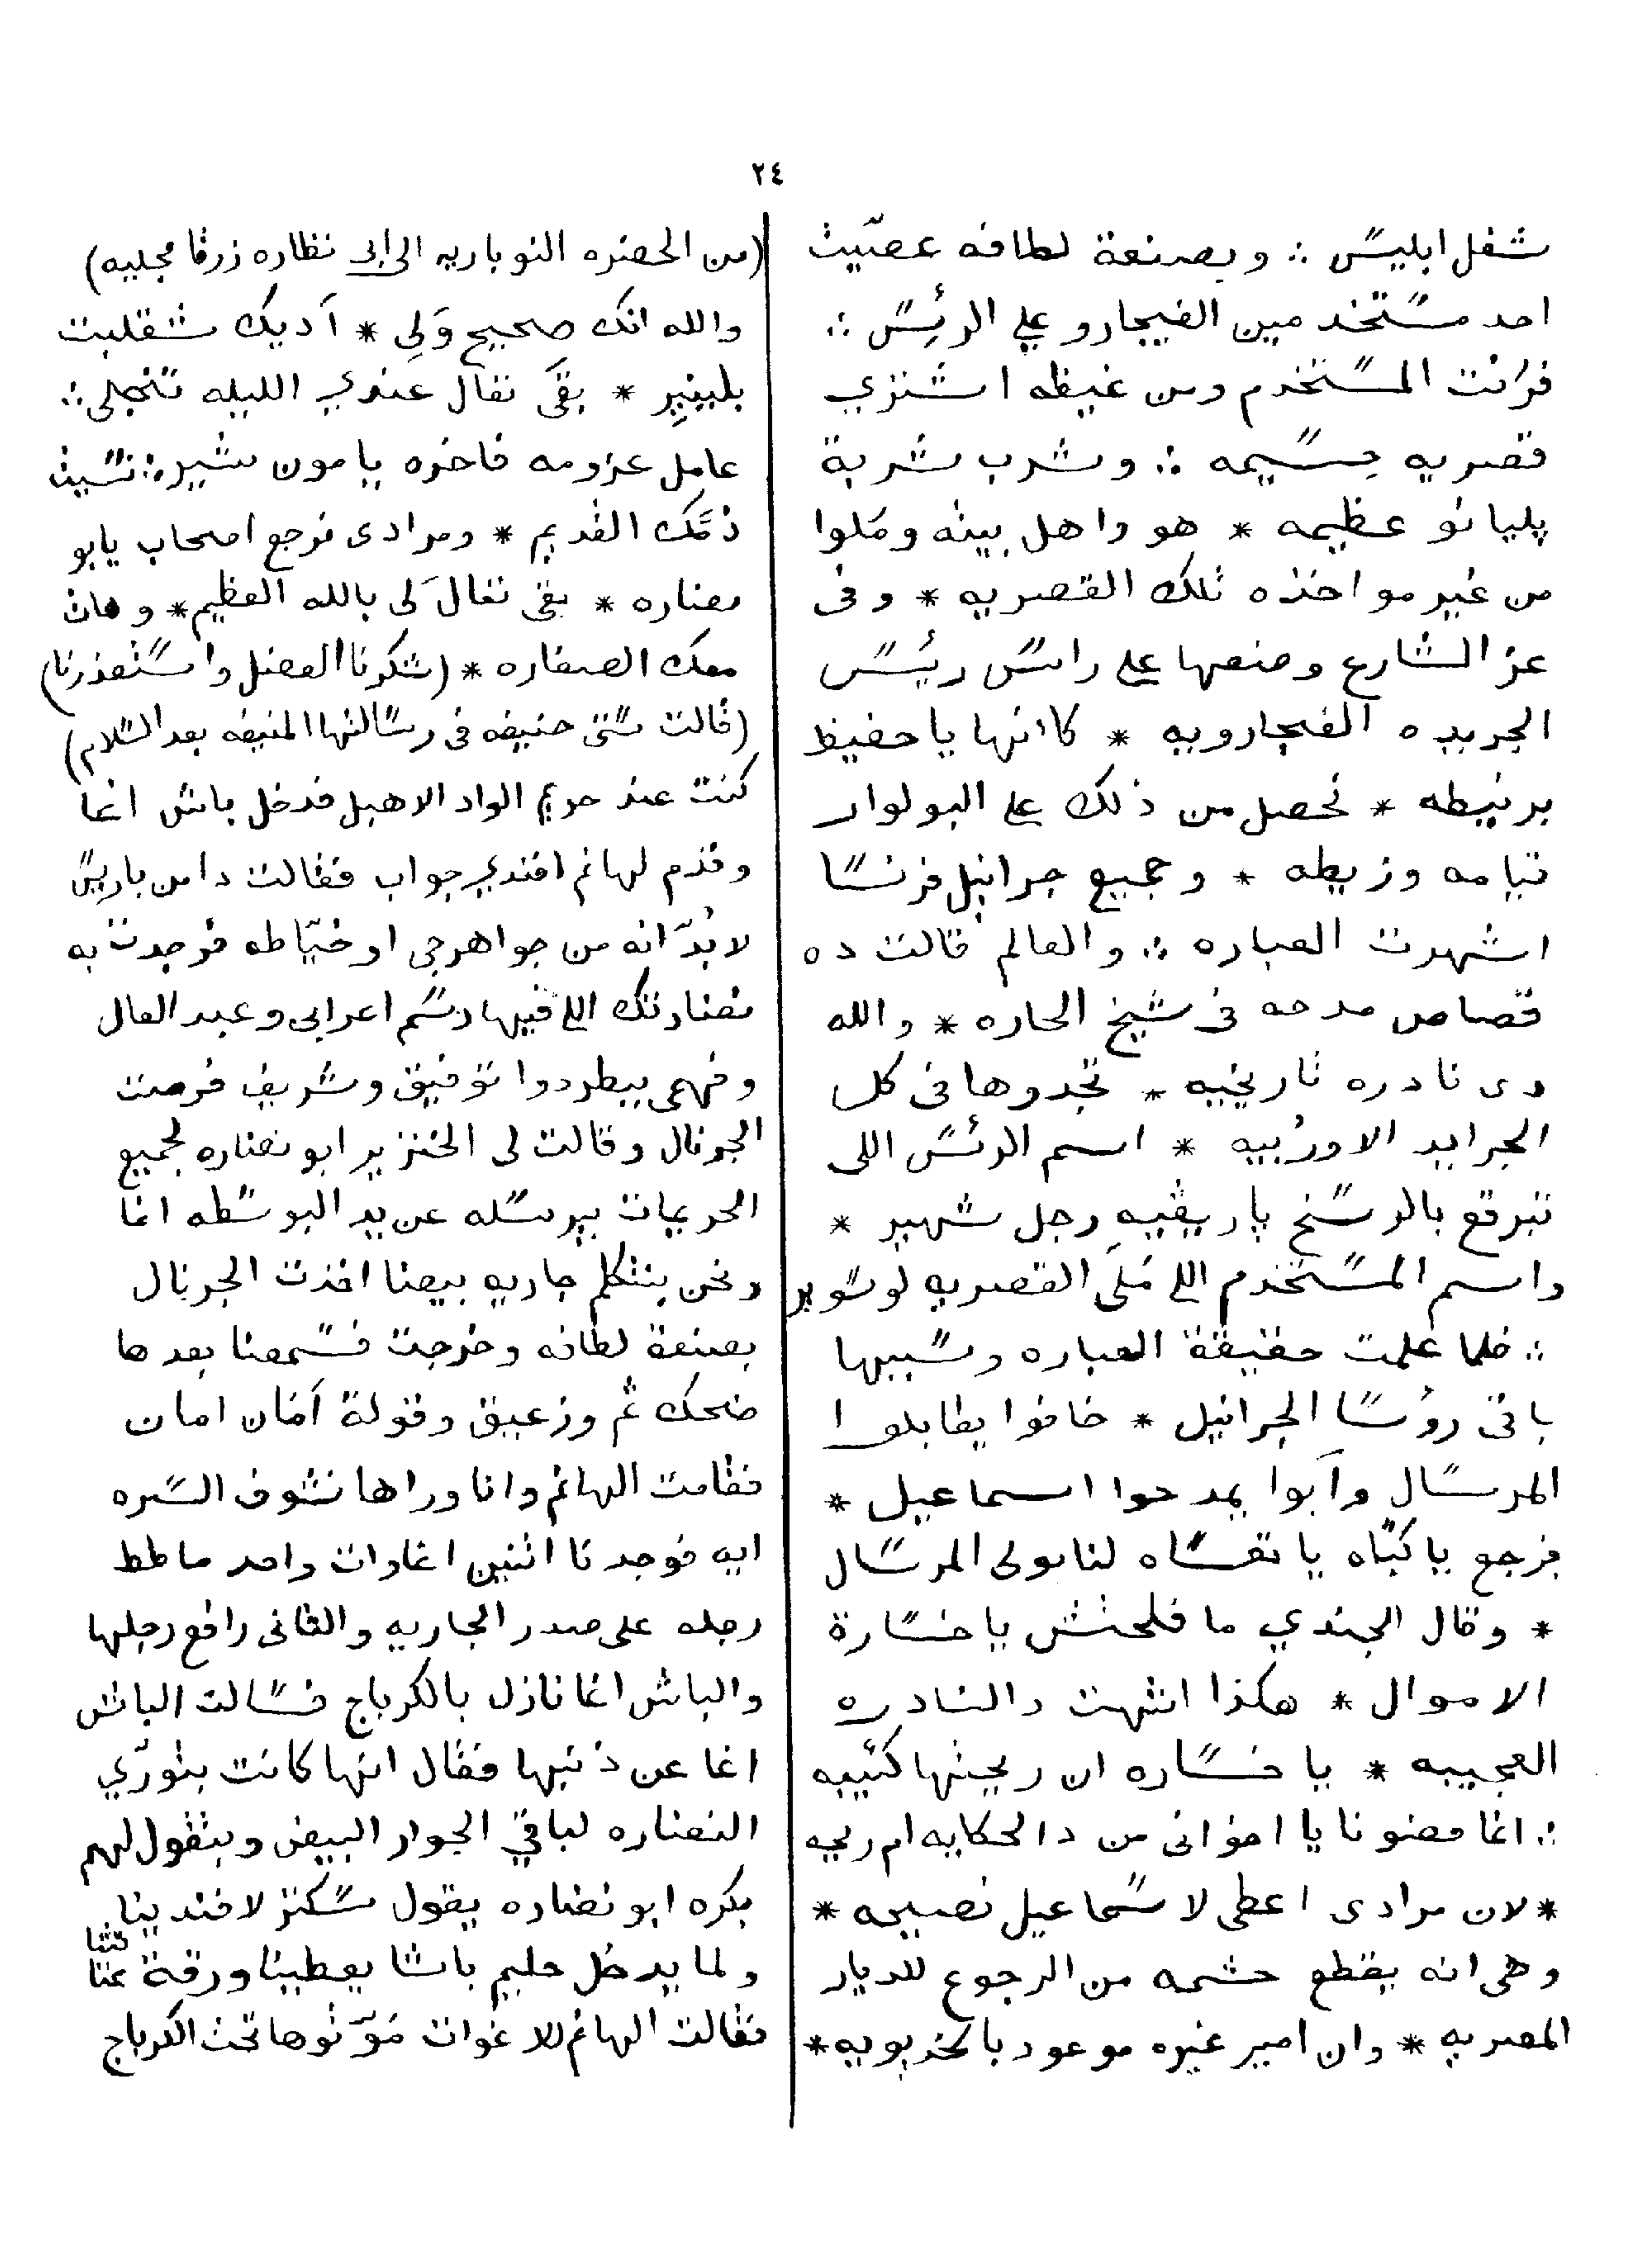 ٢٤
شغل ابليس ∴ وبصنعة لطافه عصّيت
احد مستخدمين الفيجارو علي الرئيس ∴
فرانت المستخدم ومن غيظه اشتري
قصريه جسيمه ∴ وشرب شربة
پليانو عظيمه * هو واهل بيته وملوا
من غير مواخذه تلك القصريه * وفى
عز الشارع وضعها علي راس ريس
الجريده الفيجارويه * كاانها ياحفيظ
برنيطه * فحصل من ذلك علي البولوار
قيامه وزيطه * وجميع جرانيل فرنسا
اشهرت العباره ∴ والعالم قالت ده
قصاص مدحه فى شيخ الحاره * والله
دى نادره تاريخيه * تجدوها فى كل
الجرايد الاوربيه * اسم الرئس اللى
تبرقع بالوسخ پاريڤيه رجل شهير *
واسم المستخدم اللي ملى القصريه لوسوير
∴ فلما علمت حقيقة العباره وسببها
باقى رؤسا الجرانيل * خافوا يطابلوا
المرسال وآبوا يمدحوا اسماعيل *
فرجع ياكبّاه ياتعساه لنابولى المرسال
* وقال الجندي ما فلحتش ياخسارة
الاموال * هكذا انتهت دالنادره
العجيبه * يا خساره ان ريحتها كئيبه
∴ انما معنونا يا اخوانى من دالحكايه ام ريحه
* لان مرادى اعطى لاسماعيل نصيحه *
وهى انه يقطع حشمه من الرجوع للديار
المصريه * وان امير غيره موعود بالخديويه *
(من الحضره النوباريه الى ابى نظاره زرقا مجليه)
والله انك صحيح وَلِى * آديك شقلبت
بليينير * بقى تعال عندي الليله تنجلى ∴
عامل عزومه فاخره يامون شير ∴ نسيت
ذمّك القديم * ومرادى نرجع اصحاب يابو
نضاره * بقى تعال لى بالله العظيم * وهات
معك الصفاره * (شكرنا الفضل واستعذرنا)
(قالت ستى حنيفه فى رسالتها المنيفه بعد السلام)
كنت عند حريم الواد الاهبل فدخل باش اغا
وقدم لهانم افندي جواب فقالت دا من باريس
لابُدّ انه من جواهرجى او خيّاطه فوجدت به
نضارتك اللي فيها رسم اعرابى وعبد العال
وفهمى بيطردوا توفيق وشريف فرمت
الجرنال وقالت لى الخنزير ابو نضاره لجميع
الحريمات بيرسله عن يد البوسطه انما
ونحن بنتكلم جاريه بيضا اخذت الجرنال
بصنعة لطافه وخرجت فسمعنا بعدها
ضحك ثم وزعيق وقولة آمان امان
فقامت الهانم وانا وراها نشوف السره
ايه فوجدنا اثنين اغاوات واحد ماطط
رجله على صدر الجاريه والثانى رافع رجلها
والباش اغا نازل بالكرباج فسالت الباش
اغا عن ذنبها فقال انها كانت بتورّي
النضاره لباقي الجوار البيض وبتقول لهم
بكره ابو نضاره يقول سكتر لافندينا
ولما يدخل حليم باشا يعطينا ورقة عتقنا
فقالت الهانم للاغوات مَوّتوها تحت الكرباج